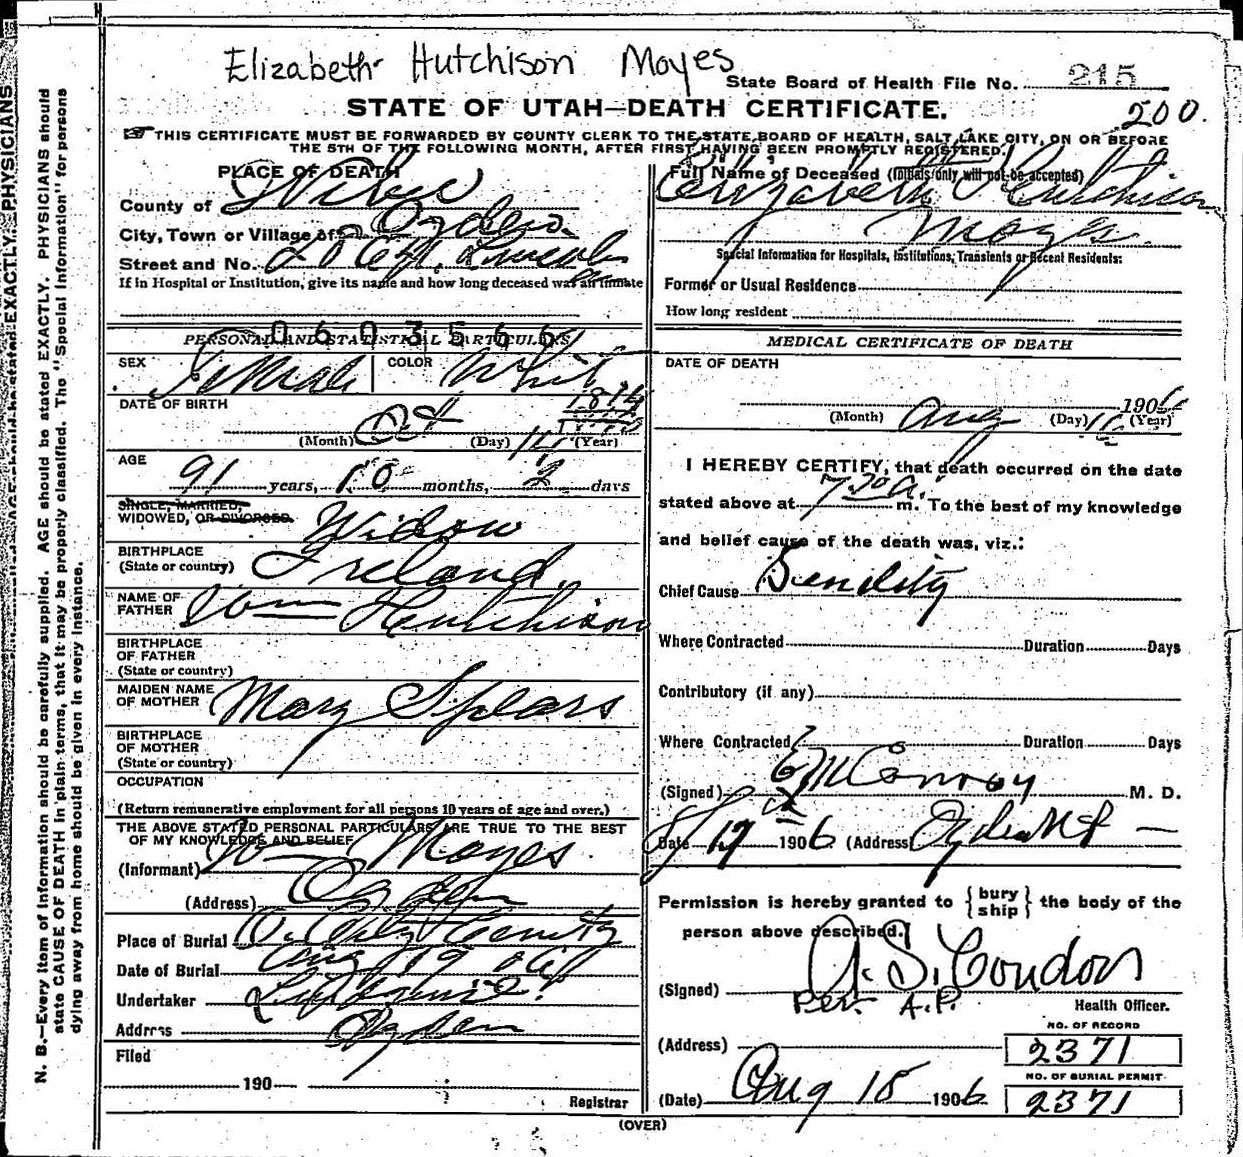 Elizabeth Hutchison Moyes
State Board of Health File No. 215
STATE OF UTAH—DEATH CERTIFICATE.
500.
THIS CERTIFICATE MUST BE FORWARDED BY COUNTY CLERK TO THE STATE BOARD OF HEALTH, SALT LAKE CITY, ON OR BEFORE
THE 5TH OF THE FOLLOWING MONTH, AFTER FIRST HAVING BEEN PROMPTLY REGISTERED.
PLACE OF DEATH
County of Weber
City, Town or Village of Ogden
Street and No. Lincoln
If in Hospital or Institution, give its name and how long deceased was an inmate
0603566
PERSONAL AND STATISTICAL PARTICULARS
SEX Female COLOR White
DATE OF BIRTH 1814
(Month) Oct (Day) (Year)
AGE
91 years, 10 months, 2 days
SINGLE, MARRIED,
WIDOWED, OR DIVORCED. Widow
BIRTHPLACE
(State or country) Ireland.
NAME OF
FATHER Wm Hutchison
BIRTHPLACE
OF FATHER
(State or country)
MAIDEN NAME
OF MOTHER Mary Spears
BIRTHPLACE
OF MOTHER
(State or country)
OCCUPATION
(Return remunerative employment for all persons 10 years of age and over.)
THE ABOVE STATED PERSONAL PARTICULARS ARE TRUE TO THE BEST
OF MY KNOWLEDGE AND BELIEF
(Informant) Wm Moyes
(Address) Ogden
Place of Burial O. City Cemity
Date of Burial Aug 19 06
Undertaker
Address Ogden
Filed
190
Registrar
Full Name of Deceased (Initials only will not be accepted)
Elizabeth Hutchison
Moyes.
Special Information for Hospitals, Institutions, Transients or Recent Residents:
Former or Usual Residence
How long resident
MEDICAL CERTIFICATE OF DEATH
DATE OF DEATH
1906
(Month) Aug (Day) (Year)
I HEREBY CERTIFY, that death occurred on the date
stated above at 7 a. m. To the best of my knowledge
and belief cause of the death was, viz.:
Chief Cause Senility
Where Contracted Duration Days
Contributory (if any)
Where Contracted Duration Days
(Signed) E M Conroy M. D.
Date 8/17 1906 (Address) Ogden
Permission is hereby granted to { bury ship } the body of the
person above described.
(Signed) A. S. Condon
Per. A.P. Health Officer.
NO. OF RECORD
(Address) 2371
NO. OF BURIAL PERMIT
(Date) Aug 18 1906 2371
(OVER)
N. B.—Every item of information should be carefully supplied. AGE should be stated EXACTLY. PHYSICIANS should
state CAUSE OF DEATH in plain terms, that it may be properly classified. The "Special Information" for persons
dying away from home should be given in every instance.
EXACTLY. PHYSICIANS